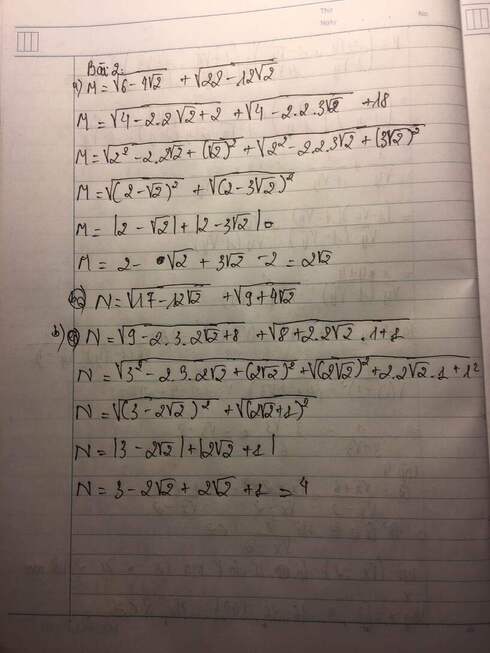 Bài 2:
a) M = √6-4√2 + √22-12√2
M = √4-2.2√2+2 + √4-2.2.3√2 +18
M = √2²-2.2√2+(√2)² + √2²-2.2.3√2+(3√2)²
M = √(2-√2)² + √(2-3√2)²
M = |2-√2|+|2-3√2|
M = 2-√2+3√2-2 = 2√2
N = √17-12√2 + √9+4√2
b) N = √9-2.3.2√2+8 + √8+2.2√2.1+1
N = √3²-2.3.2√2+(2√2)² + √(2√2)²+2.2√2.1+1²
N = √(3-2√2)² + √(2√2+1)²
N = |3-2√2|+|2√2+1|
N = 3-2√2+2√2+1 = 4